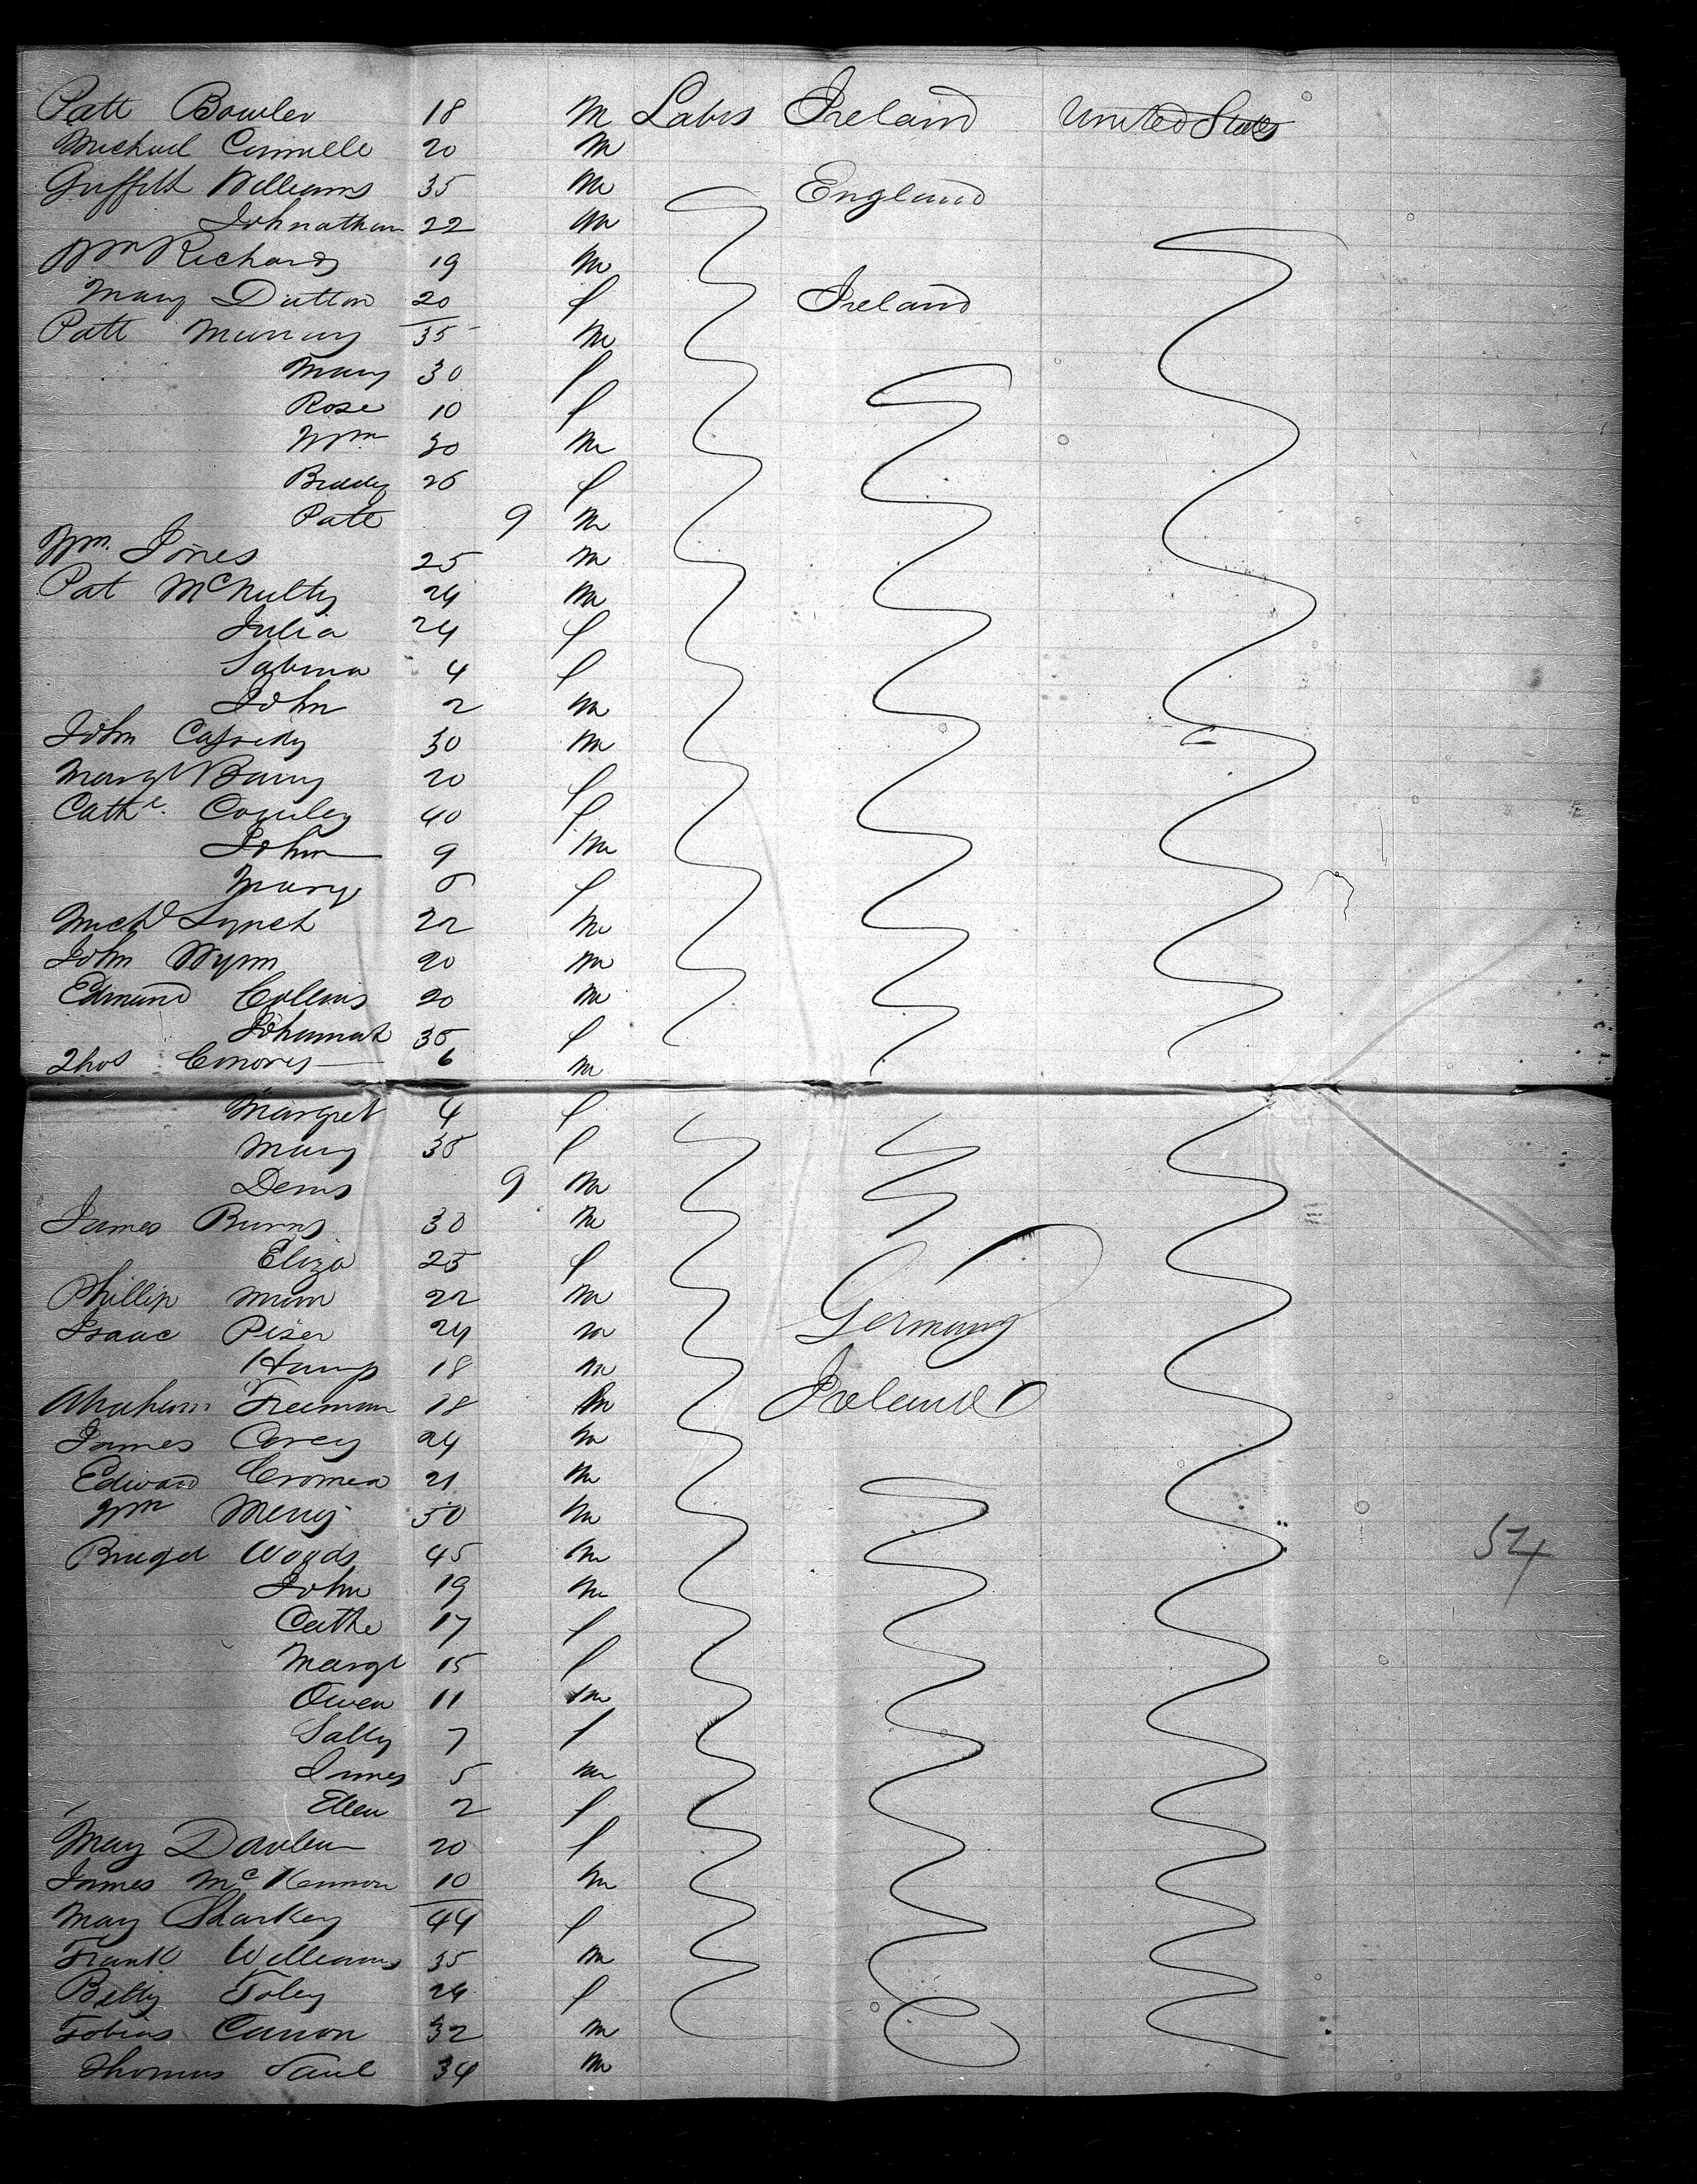 Patt Bowler 18 M Labrs Ireland United States
Michael 20 M
Griffith Williams 35 M England
Johnathan 22 M
Wm Richards 19 M
Mary Dutton 20 f Ireland
Patt Murray 35 M
Mary 30 f
Rose 10 f
Wm 30 M
Briddy 26 f
Patt 9 M
Wm. Jones 25 M
Pat McNulty 24 M
Julia 24 f
Sabina 4 f
John 2 M
John Cassidy 30 M
Margt Barry 20 f
Cathe. Cowley 40 f
John 9 M
Mary f
Michl Lynch 22 M
John Wynn 20 M
Edmund Collins 20 M
Johannah 35 f
Thos Conors 6 M
Margret 4 f
Mary 35 f
Denis 9 M
James Burns 30 M
Eliza 25 f
Phillip 22 M Germany
Isaac Piser 24 M
18 M
Abraham Freeman 18 M Ireland
James Corey 24 M
Edward 21 M
Wm Merry 50 M
Bridget Woods 45 M
John 19 M
Cathe 17 f
Margt 15 f
Owen 11 M
Sally 7 f
James 5 M
Ellen 2 f
54
May 20 f
James McKennon 10 M
May Sharkey 44 f
Frank Williams 35 M
Betty Foley 24 f
Tobias Canon 32 M
Thomas Saul 34 M